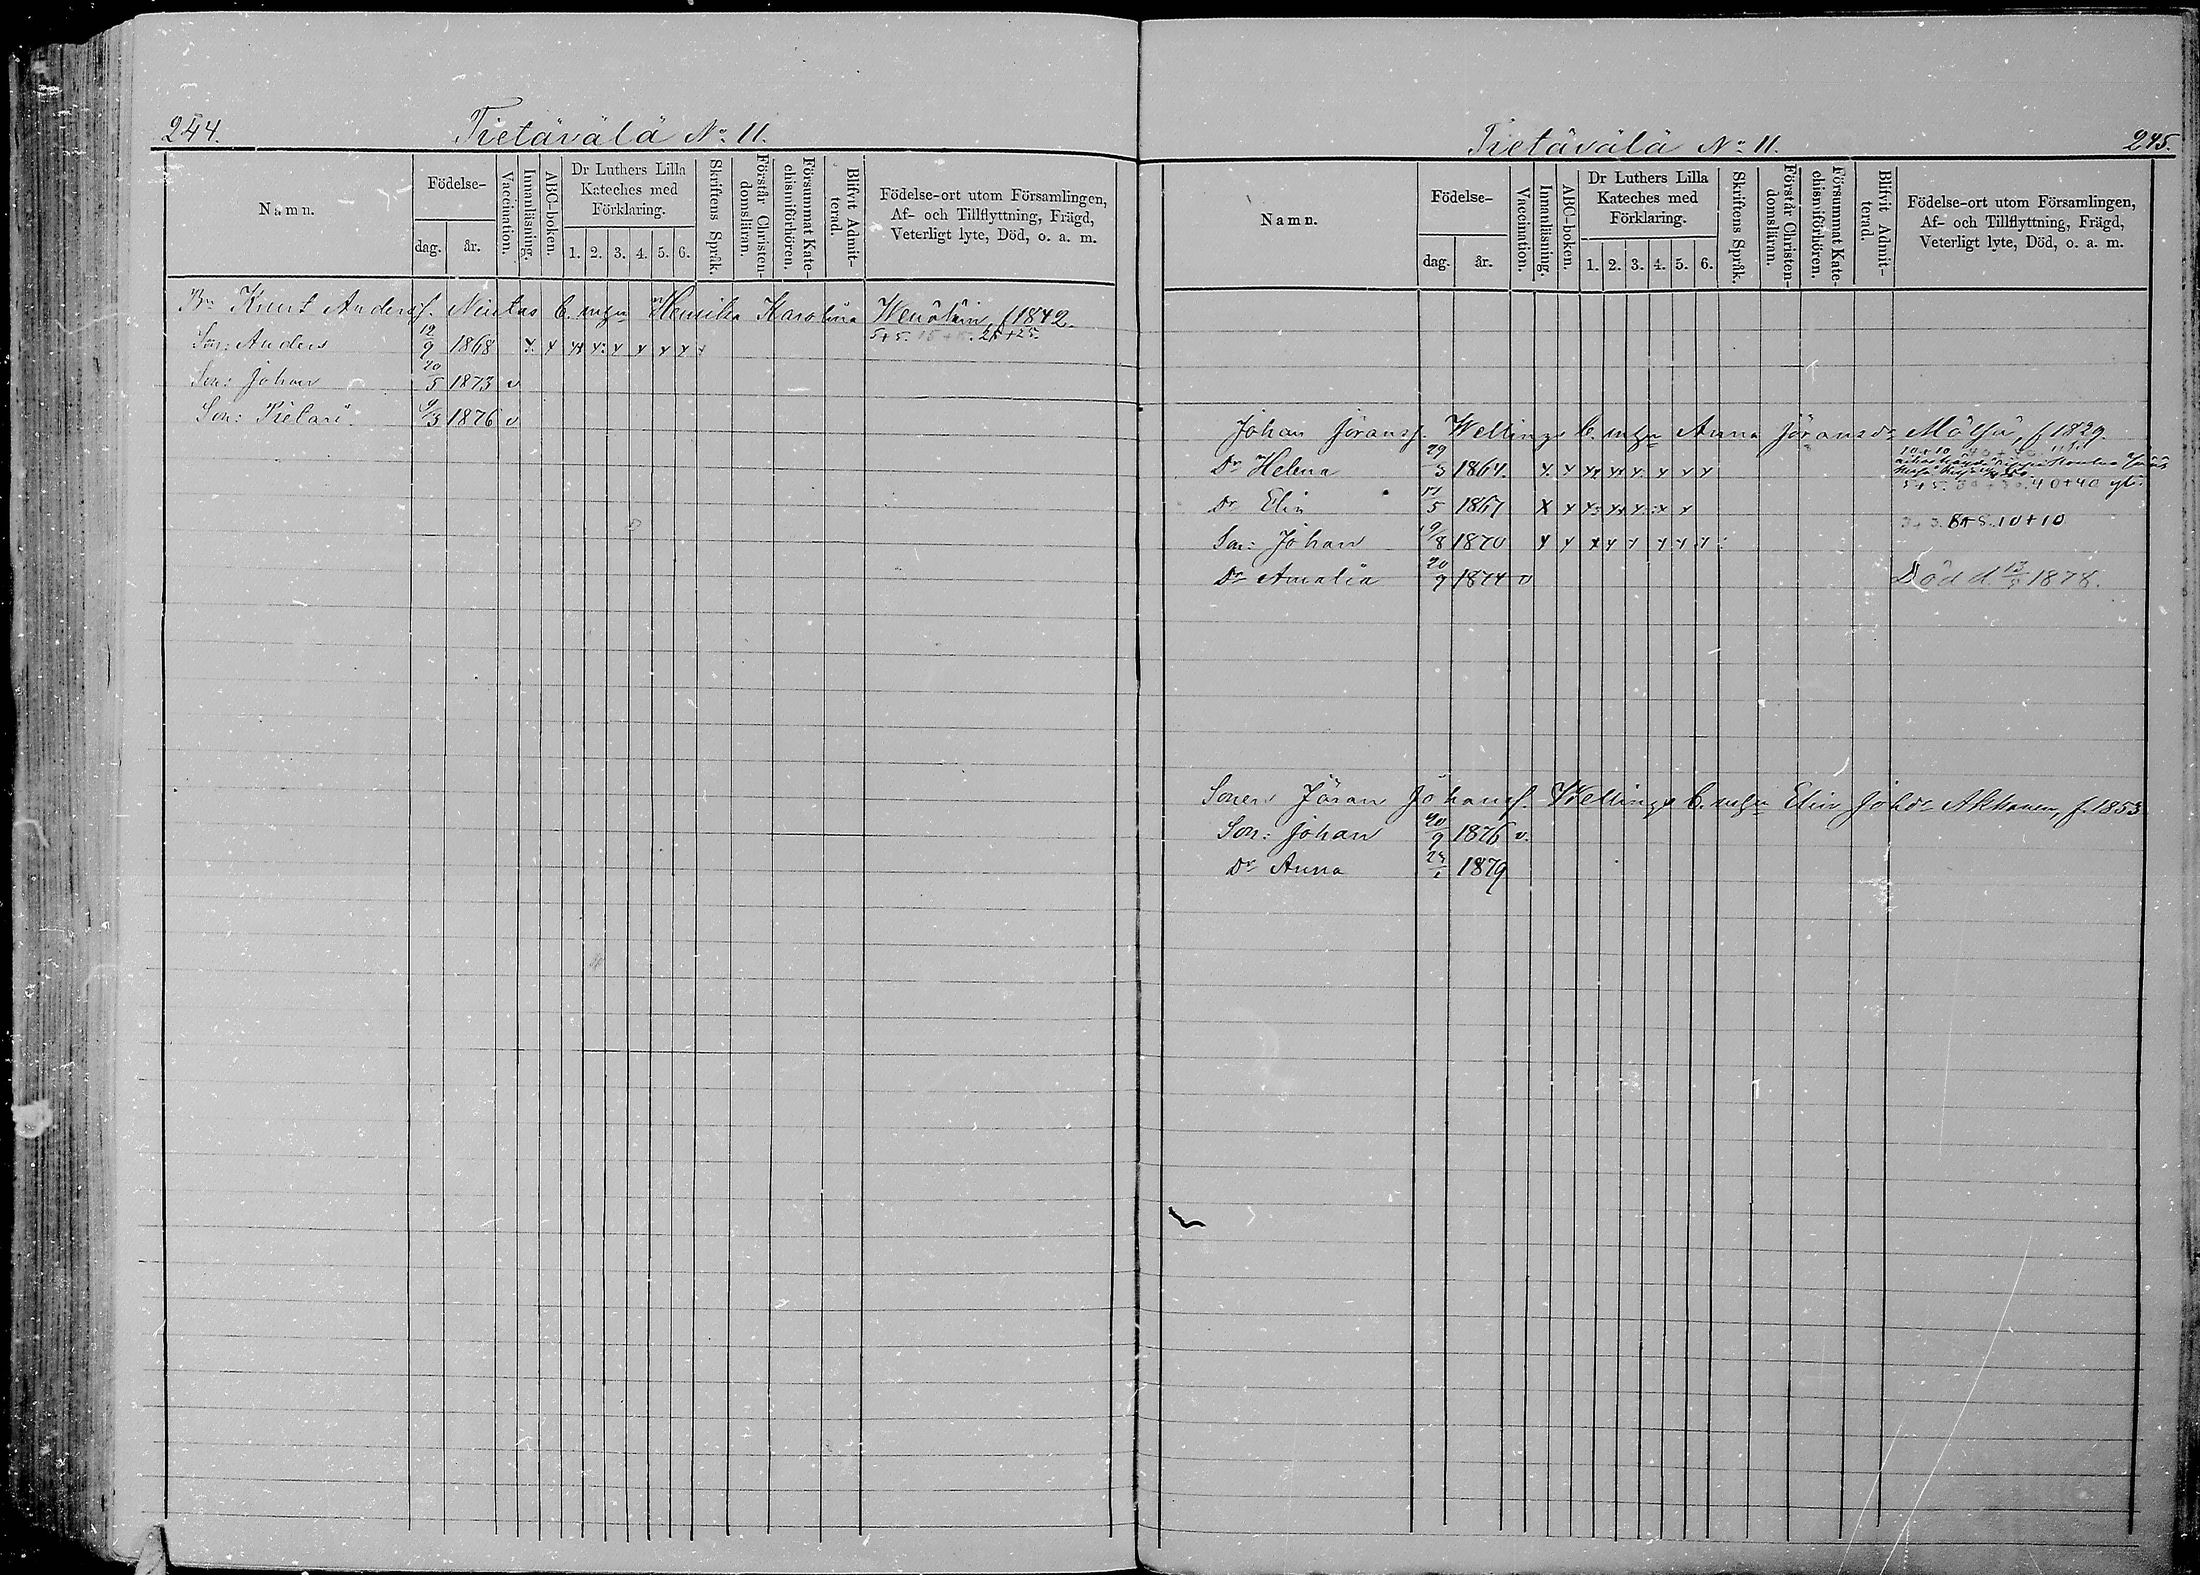 244. Tietävälä No 11.
Namn.
Födelse-
dag. år.
Vaccination.
Innanläsning.
ABC-boken.
Dr Luthers Lilla Kateches med Förklaring.
1. 2. 3. 4. 5. 6.
Skriftens Språk.
Förstår Christendomsläran.
Försummat Katechismiförhören.
Blifvit Admitterad.
Födelse-ort utom Församlingen, Af- och Tillflyttning, Frägd, Veterligt lyte, Död, o. a. m.
Bn Knut Andersf. h. m. Henrika Karolina f 1842.
Son: Anders 12/9 1868 5+5. 25+25.
Son: Johan 20/5 1873 v
Son: Pietari 9/3 1876 v
Tietävälä No 11. 245.
Namn.
Födelse-
dag. år.
Vaccination.
Innanläsning.
ABC-boken.
Dr Luthers Lilla Kateches med Förklaring.
1. 2. 3. 4. 5. 6.
Skriftens Språk.
Förstår Christendomsläran.
Försummat Katechismiförhören.
Blifvit Admitterad.
Födelse-ort utom Församlingen, Af- och Tillflyttning, Frägd, Veterligt lyte, Död, o. a. m.
Johan Göransf. Wellings Anna Göransdr Mölsä, f 1829.
Dr Helena 29/3 1864. 10+10
Dr Elin 17/5 1867 5+5. 40+40
Son: Johan 9/8 1870 8+8. 10+10
Dr Amalia 20/9 1874 v Död d. 1878.
Sonen Göran Johansf. Wellings Elin Johdr Akkanen, f. 1853
Son: Johan 20/9 1876 v.
Dr Anna 1879